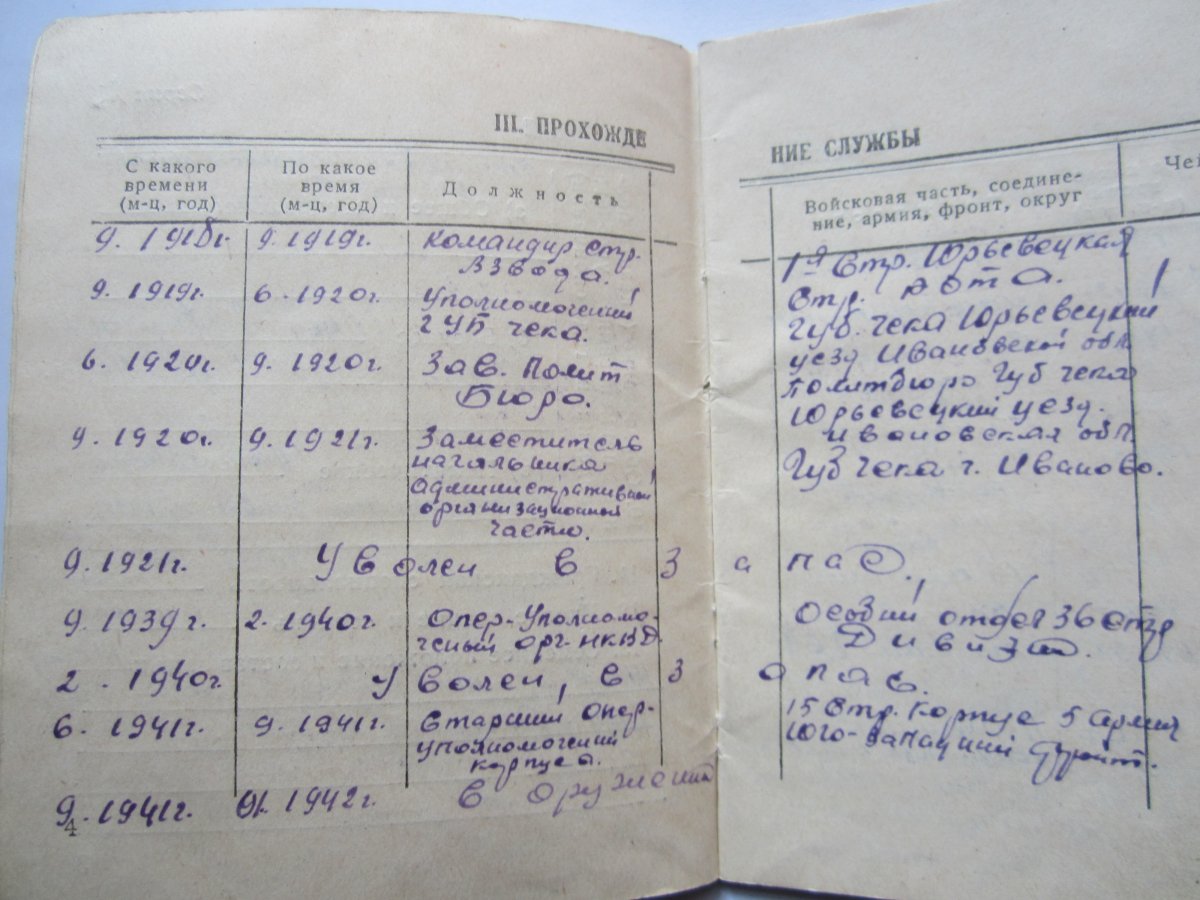 III. ПРОХОЖДЕ
С какого времени (м-ц, год)
По какое время (м-ц, год)
Должность
9. 1918г. 9. 1919г. Командир стр.
взвода.
9. 1919г. 6. 1920г. Уполномоченый
ГУБ чека.
6. 1920г. 9. 1920г. Зав. Полит
Бюро.
9. 1920г. 9. 1921г. Заместитель
начальника
административной
организационной
частью.
9. 1921г. Уволен в з
9. 1939г. 2. 1940г. Опер-Уполномо-
ченый орг. НКВД
2. 1940г. Уволен, в з
6. 1941г. 9. 1941г. Старший опер-
уполномоченый
корпуса.
9. 1941г. 01. 1942г. в окружении
4
НИЕ СЛУЖБЫ
Войсковая часть, соедине-
ние, армия, фронт, округ
Че
1я Стр. Юрьевецкая
стр. рота.
Губ. чека Юрьевецкий
уезд Ивановской обл.
Политбюро Губ чека
Юрьевецкий уезд.
Ивановская обл.
Губ чека г. Иваново.
а пас.
Особый отдел 36 стр
Дивизии.
апас.
15 Стр. Корпус 5 армия
Юго-западный фронт.